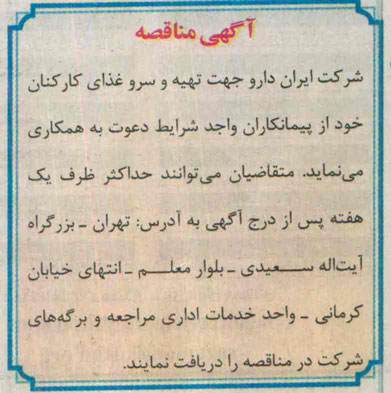 آگهی مناقصه
شرکت ایران دارو جهت تهیه و سرو غذای کارکنان
خود از پیمانکاران واجد شرایط دعوت به همکاری
می‌نماید. متقاضیان می‌توانند حداکثر ظرف یک
هفته پس از درج آگهی به آدرس: تهران ـ بزرگراه
آیت‌اله سعیدی ـ بلوار معلم ـ انتهای خیابان
کرمانی ـ واحد خدمات اداری مراجعه و برگه‌های
شرکت در مناقصه را دریافت نمایند.